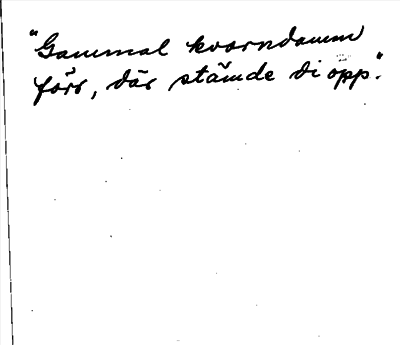 "Gammal kvarndamm
förr, där stämde di opp".